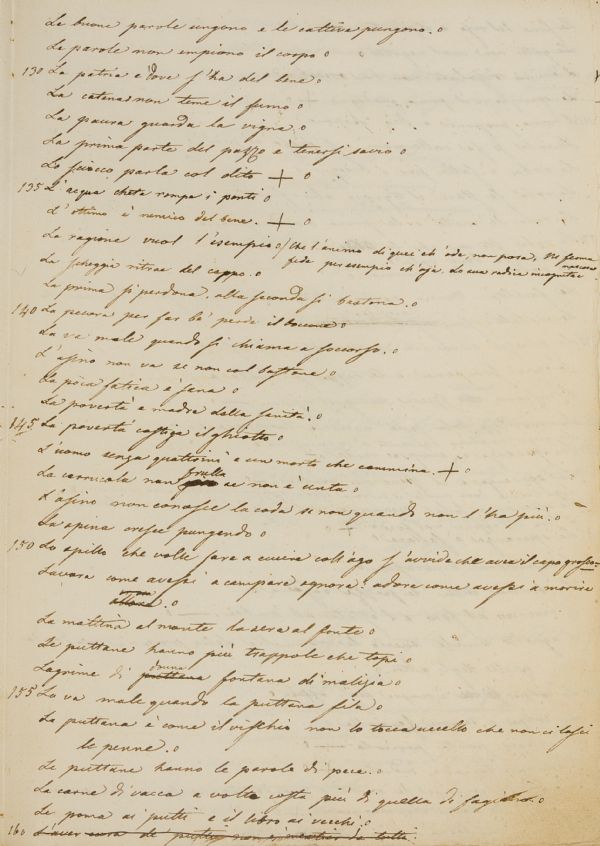 Le buone parole ungono e le cattive pungono. o
Le parole non empiono il corpo o
130 La patria è dove s'ha del bene o
La catena non teme il fumo o
La paura guarda la vigna. o
La prima parte del pazzo è tenersi savio o
Lo sciocco parla col dito + o
135 L'acqua cheta rompe i ponti o
L'ottimo è nemico del bene. + o
La ragione vuol l'esempio o/ Che l'animo di quei ch'ode, non posa, Nè ferma
fede per esempio ch'aja La sua radice incognita e nascosa
La scheggia ritrae del ceppo. o
La prima si perdona. alla seconda si bastona. o
140 La pecora per far bè perde il boccone o
La va male quando si chiama a soccorso. o
L'asino non va se non col bastone o
La poca fatica è sana o
La povertà e madre della sanità. o
145 La povertà castiga il ghiotto o
L'uomo senza quattrini e un morto che cammina. + o
La carrucola non frulla se non è unta o
L'asino non conosce la coda se non quando non l'ha più. o
La spina cresce pungendo o
150 Lo spillo che volle fare a cucire coll'ago s'avvide che avea il capo grosso
Lavora come avessi a campare ognora: adora come avessi a morire
allora. o
La mattina al monte la sera al fonte o
Le puttane hanno più trappole che topi o
Lagrime di puttana donna fontana di malizia o
155 La va male quando la puttana fila o
La puttana è come il vischio non lo tocca uccello che non ci lasci
le penne. o
Le puttane hanno le parole di pece. o
La carne di vacca a volte costa più di quella di o
Le poma ai putti e il libro ai vecchi. o
160 L'aver cura de' putti non è mestier da tutti